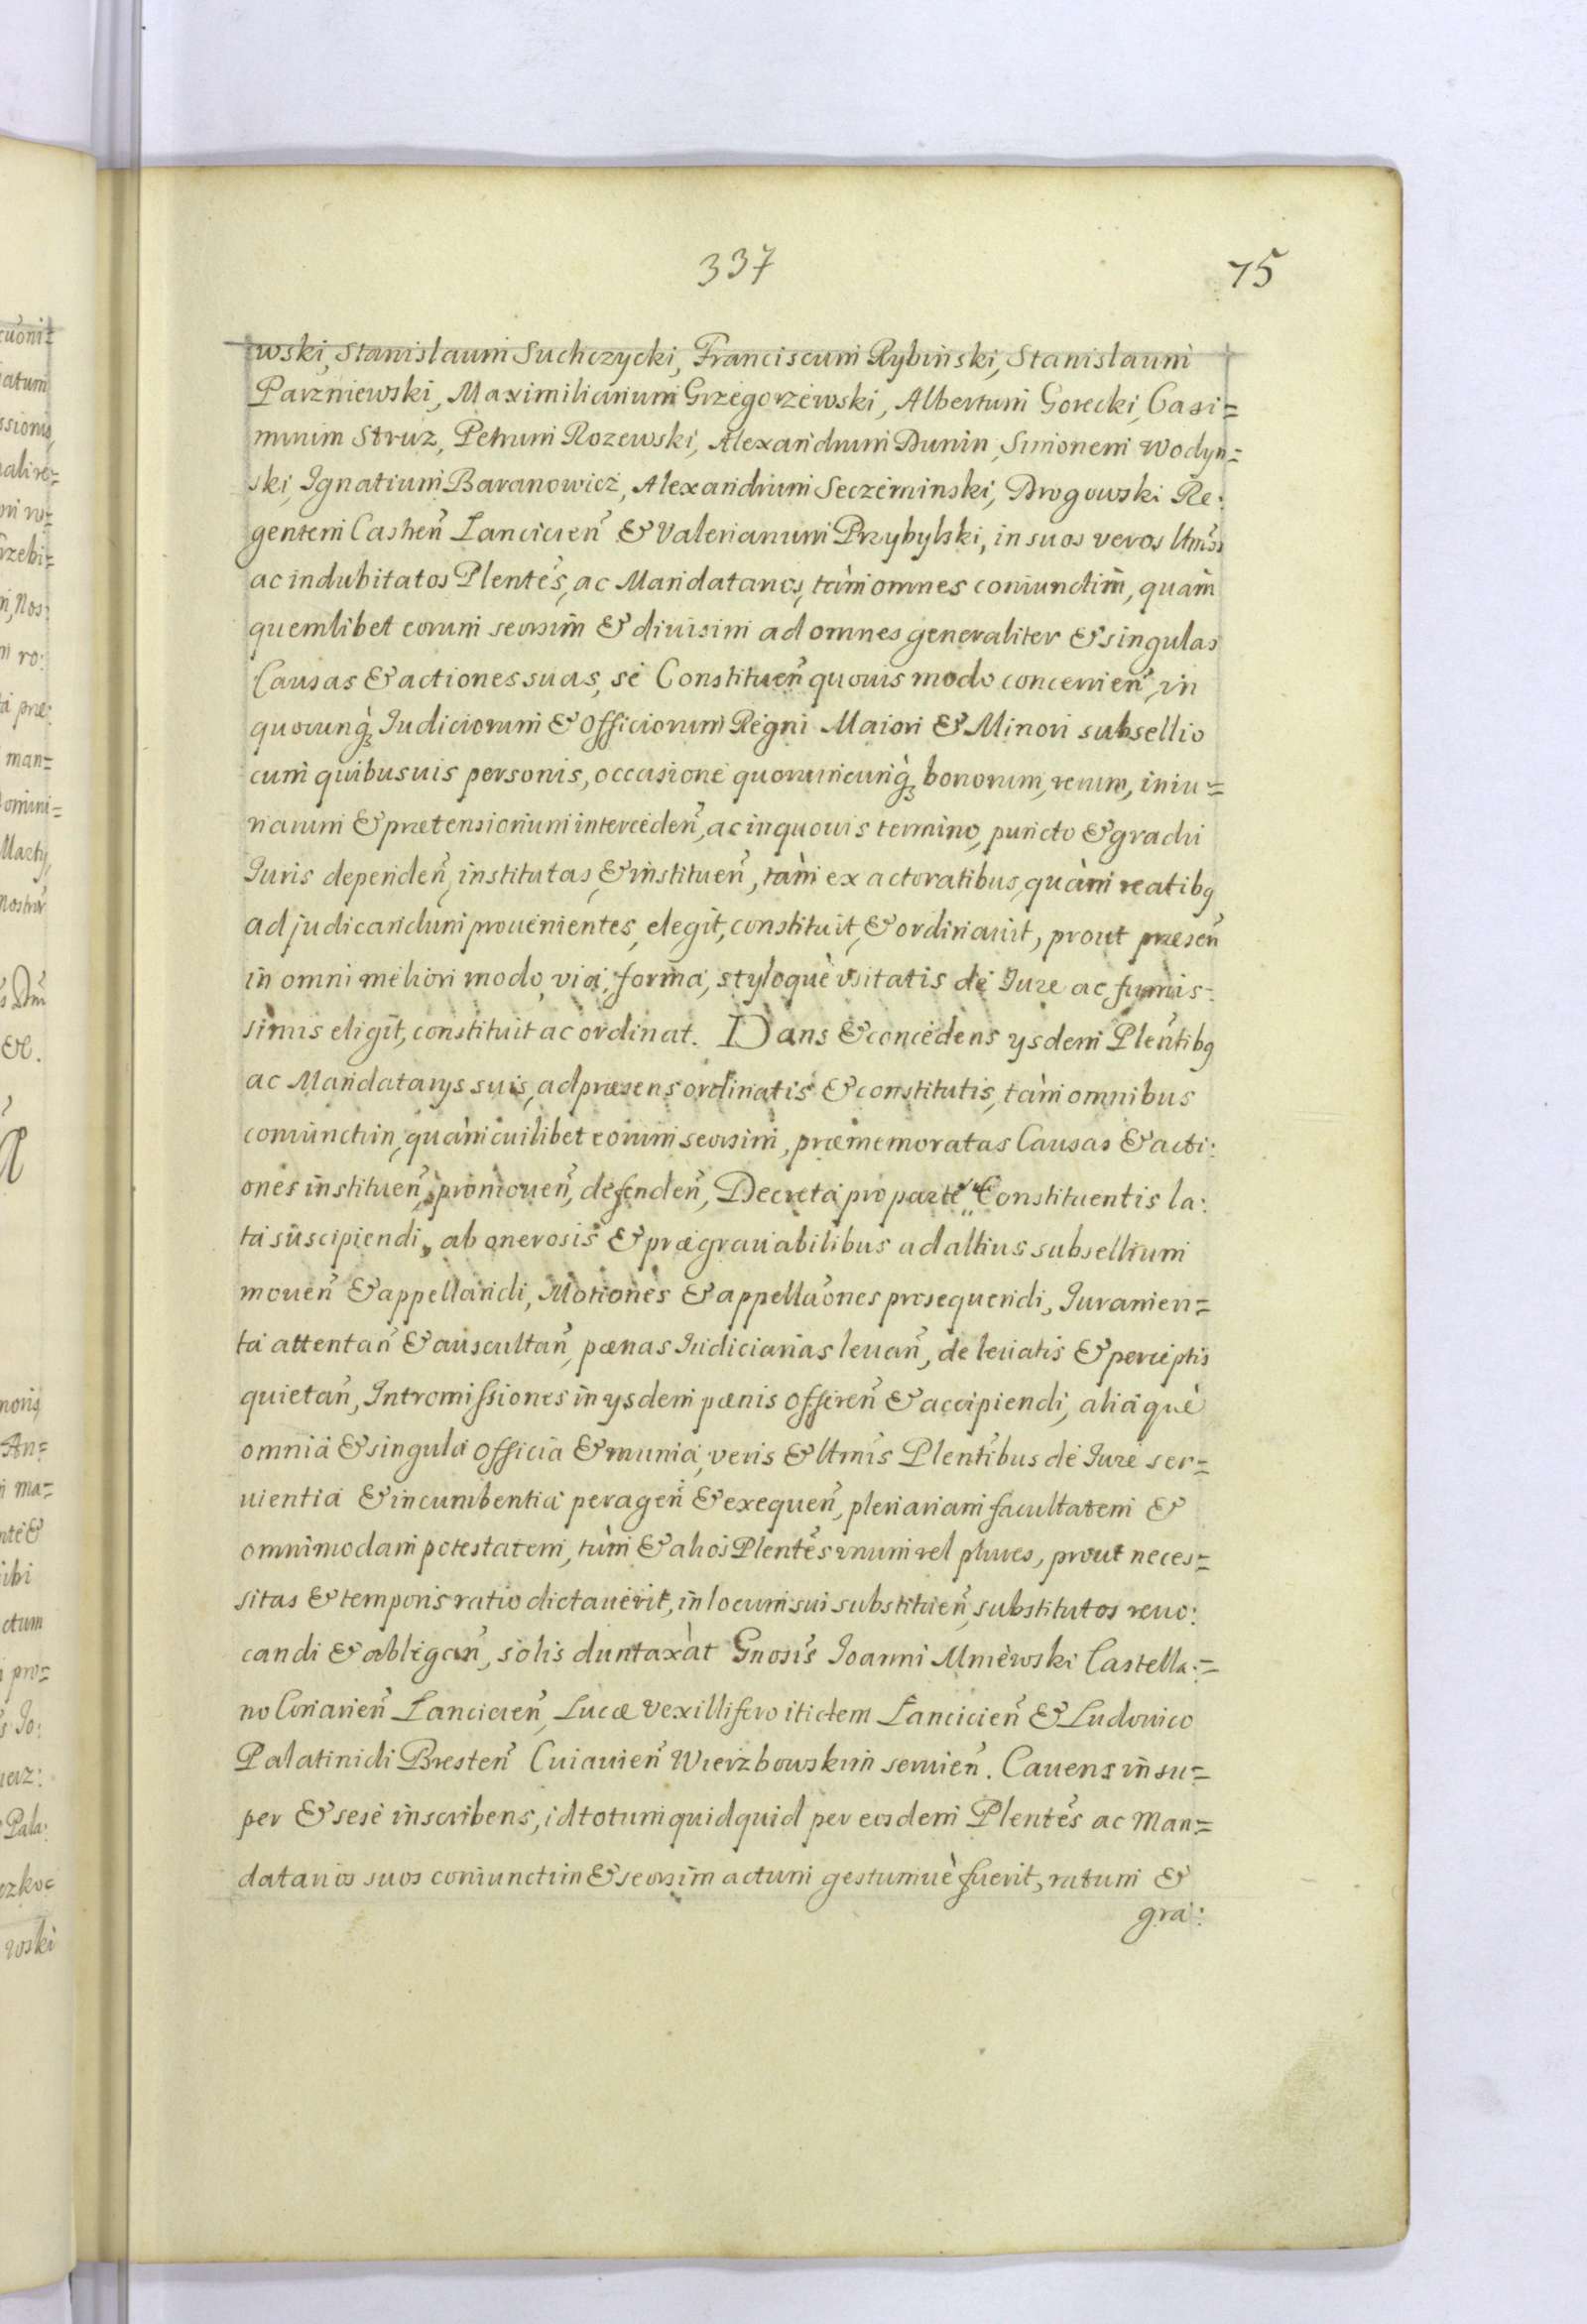 337
75
wski, Stanislaum Suchczycki, Franciscum Rybiński, Stanislaum
Parzniewski, Maximilianum Grzegorzewski, Albertum Gorecki, Casi=
mirum Struz, Petrum Rozewski, Alexandrum Dunin, Simonem Wodyn=
ski, Ignatium Baranowicz, Alexandrum Seczeminski, Drogowski Re:
gentem Castren̄ Lancicien̄ & Valerianum Przybylski, in suos veros ltm̄os
ac indubitatos Plentēs, ac Mandatarios, tàm omnes coniunctim, quàm
quemlibet eorum seorsim & diuisim ad omnes generaliter & singulas
Causas & actiones suas, se Constituen̄ quouis modo concernien̄, in
quorunq̀ꝫ Iudiciorum & Officiorum Regni Maiori & Minori subsellio
cum quibusuis personis, occasione quorumcunq̀ꝫ bonorum, rerum, iniu=
riarum & prætensionum interceden̄, ac in quouis termino, puncto & gradu
Iuris dependen̄, institutas, & instituen̄, tàm ex actoratibus, quàm reatibꝫ
ad judicandum prouenientes, elegit, constituit, & ordinauit, prout præsen̄
in omni meliori modo, via, forma, styloquè vsitatis de Iure ac firmis-
simis eligit, constituit ac ordinat. Dans & concedens ysdem Plen̄tibꝫ
ac Mandatarys suis, ad præsens ordinatis & constitutis, tàm omnibus
coniunctim, quàm cuilibet eorum seorsim, præmemoratas Causas & acti:
ones instituen̄, promouen̄, defenden̄, Decreta pro parte Constituentis la:
ta suscipiendi, ab onerosis & prægrauabilibus ad altius subsellium
mouen̄ & appellandi, Motiones & appellaōnes prosequendi, Iuramen=
ta attentan̄ & auscultan̄, pænas Iudiciarias leuan̄, de leuatis & perceptis
quietan̄, Intromissiones in ysdem pænis offeren̄ & accipiendi, aliaquè
omnia & singula officia & munia, veris & ltmīs Plentībus de Iure ser=
uientia & incumbentia peragen̄ & exequen̄, plenariam facultatem &
omnimodam potestatem, tùm & alios Plentēs vnum vel plures, prout neces=
sitas & temporis ratio dictauerit, in locum sui substituen̄, substitutos reuo:
candi & abligan̄, solis duntaxàt Gnosīs Ioanni Mniewski Castella:=
no Conarien̄ Lancicien̄, Lucæ Vexillifero itidem Lancicien̄ & Ludouico
Palatinidi Bresten̄ Cuiauien̄ Wierzbowskim seruien̄. Cauens insu=
per & sese inscribens, id totum quidquid per eosdem Plentēs ac Man=
datarios suos coniunctim & seorsim actum gestumuè fuerit, ratum &
gra: